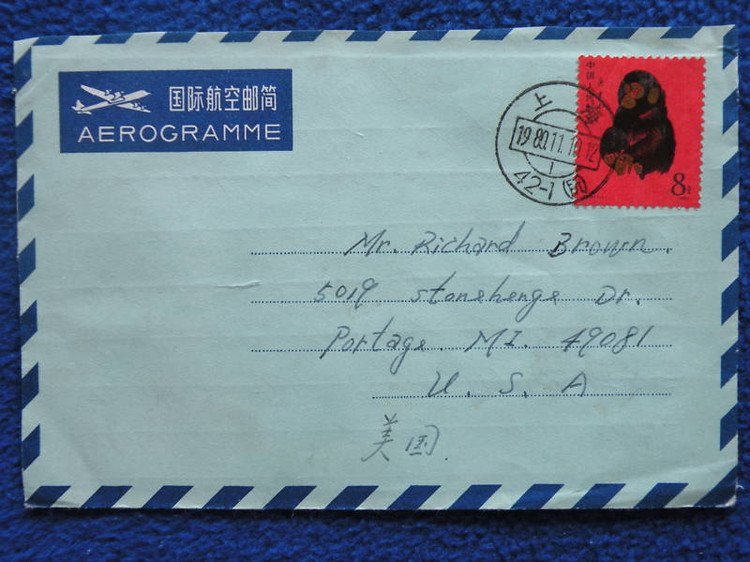 国际航空邮简
AEROGRAMME
上海
1980.11.10.12
42-1(支)
中国人民邮政
8分
Mr. Richard Brown.
5019 stonehenge Dr.
Portage. MI. 49081
U. S. A
美国.